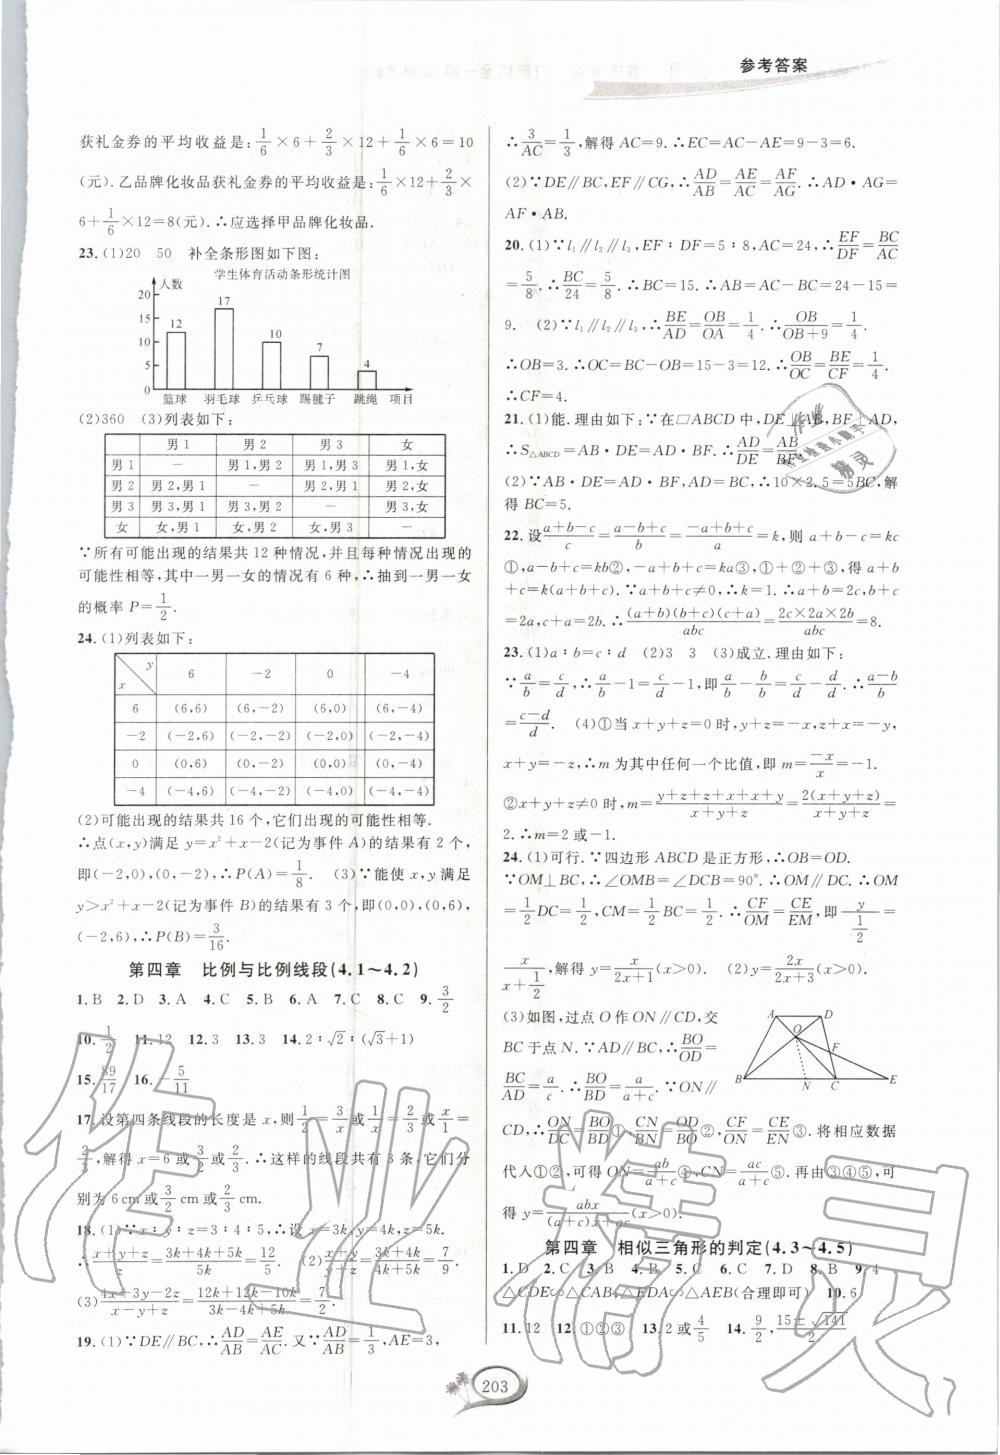 参考答案
获礼金券的平均收益是:1/6×6+2/3×12+1/6×6=10
(元).乙品牌化妆品获礼金券的平均收益是:1/6×12+2/3×
6+1/6×12=8(元).∴应选择甲品牌化妆品.
23.(1)20 50 补全条形图如下图:
学生体育活动条形统计图
人数
20
15
10
5
0
12 17 10 7 4
篮球 羽毛球 乒乓球 踢毽子 跳绳 项目
(2)360 (3)列表如下:
男1 男2 男3 女
男1 — 男1,男2 男1,男3 男1,女
男2 男2,男1 — 男2,男3 男2,女
男3 男3,男1 男3,男2 — 男3,女
女 女,男1 女,男2 女,男3 —
∵所有可能出现的结果共12种情况,并且每种情况出现的
可能性相等,其中一男一女的情况有6种,∴抽到一男一女
的概率P=1/2.
24.(1)列表如下:
y x 6 -2 0 -4
6 (6,6) (6,-2) (6,0) (6,-4)
-2 (-2,6) (-2,-2) (-2,0) (-2,-4)
0 (0,6) (0,-2) (0,0) (0,-4)
-4 (-4,6) (-4,-2) (-4,0) (-4,-4)
(2)可能出现的结果共16个,它们出现的可能性相等.
∴点(x,y)满足y=x²+x-2(记为事件A)的结果有2个,
即(-2,0),(0,-2),∴P(A)=1/8. (3)∵能使x,y满足
y>x²+x-2(记为事件B)的结果有3个,即(0,0),(0,6),
(-2,6),∴P(B)=3/16.
第四章 比例与比例线段(4.1～4.2)
1.B 2.D 3.A 4.C 5.B 6.A 7.C 8.C 9.3/2
10.1/2 11.12 12.3 13.3 14.2∶√2∶(√3+1)
15.89/17 16.-5/11
17.设第四条线段的长度是x,则1/2=3/x或1/x=2/3或x/1=
2/3,解得x=6或3/2或2/3.∴这样的线段共有3条,它们分
别为6cm或3/2cm或2/3cm.
18.(1)∵x∶y∶z=3∶4∶5,∴设x=3k,y=4k,z=5k.
∴(x+y+z)/z=(3k+4k+5k)/5k=12/5. (2)(x+y)/(y+z)=(3k+4k)/(4k+5k)=7/9.
(3)(4x+3y-2z)/(x-y+z)=(12k+12k-10k)/(3k-4k+5k)=7/2.
19.(1)∵DE∥BC,∴AD/AB=AE/AC.又∵AD/AB=1/3,AE=3,
∴3/AC=1/3,解得AC=9.∴EC=AC-AE=9-3=6.
(2)∵DE∥BC,EF∥CG,∴AD/AB=AE/AC=AF/AG.∴AD·AG=
AF·AB.
20.(1)∵l₁∥l₂∥l₃,EF∶DF=5∶8,AC=24,∴EF/DF=BC/AC
=5/8.∴BC/24=5/8.∴BC=15.∴AB=AC-BC=24-15=
9. (2)∵l₁∥l₂∥l₃,∴BE/AD=OB/OA=1/4.∴OB/(OB+9)=1/4.
∴OB=3.∴OC=BC-OB=15-3=12.∴OB/OC=BE/CF=1/4.
∴CF=4.
21.(1)能.理由如下:∵在□ABCD中,DE⊥AB,BF⊥AD,
∴S△ABCD=AB·DE=AD·BF.∴AD/DE=AB/BF.
(2)∵AB·DE=AD·BF,AD=BC,∴10×2.5=5BC,解
得BC=5.
22.设(a+b-c)/c=(a-b+c)/b=(-a+b+c)/a=k,则a+b-c=kc
①,a-b+c=kb②,-a+b+c=ka③,①+②+③,得a+b
+c=k(a+b+c).∵a+b+c≠0,∴k=1.∴a+b=2c,b+c
=2a,c+a=2b.∴(a+b)(b+c)(c+a)/abc=2c×2a×2b/abc=8.
23.(1)a∶b=c∶d (2)3 3 (3)成立.理由如下:
∵a/b=c/d,∴a/b-1=c/d-1,即a/b-b/b=c/d-d/d.∴(a-b)/b
=(c-d)/d. (4)①当x+y+z=0时,y+z=-x,z+x=-y,
x+y=-z,∴m为其中任何一个比值,即m=-x/x=-1.
②x+y+z≠0时,m=(y+z+z+x+x+y)/(x+y+z)=2(x+y+z)/(x+y+z)=
2.∴m=2或-1.
24.(1)可行.∵四边形ABCD是正方形,∴OB=OD.
∵OM⊥BC,∴∠OMB=∠DCB=90°.∴OM∥DC.∴OM=
1/2DC=1/2,CM=1/2BC=1/2.∴CF/OM=CE/EM,即y/(1/2)=
x/(x+1/2),解得y=x/(2x+1)(x>0). (2)y=2x/(x+2)(x>0)
(3)如图,过点O作ON∥CD,交
BC于点N.∵AD∥BC,∴BO/OD=
BC/AD=a/c.∴BO/BD=a/(a+c).∵ON∥
A D O F B N C E
CD,∴ON/DC=BO/BD①,CN/BN=OD/OB②,CF/ON=CE/EN③.将相应数据
代入①②,可得ON=ab/(a+c)④,CN=ac/(a+c)⑤.再由③④⑤,可
得y=abx/((a+c)x+ac)(x>0).
第四章 相似三角形的判定(4.3～4.5)
1.D 2.C 3.B 4.B 5.C 6.C 7.D 8.B 9.4
△CDE∽△CAB,△EDA∽△AEB(合理即可) 10.6
11.12 12.①②③ 13.2或4/5 14.9/2,(15±√141)/
203
作业精灵